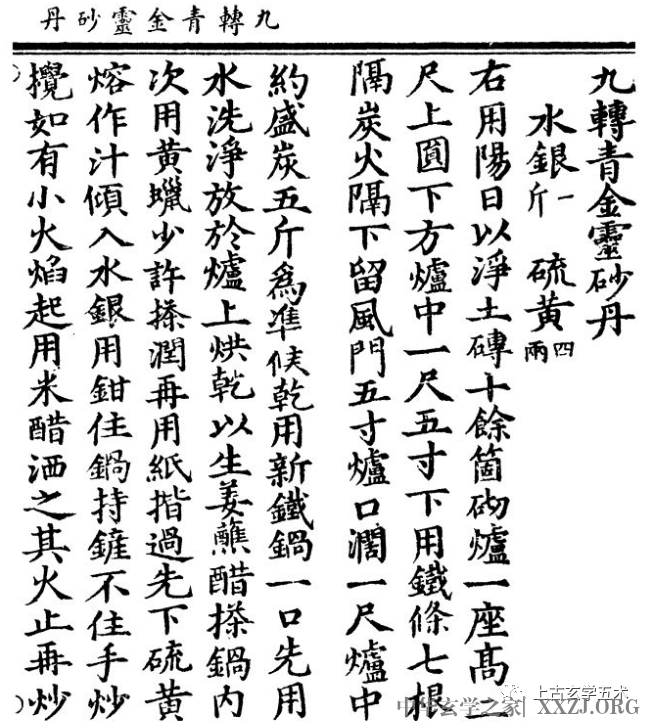 九轉青金靈砂丹
九轉青金靈砂丹
水銀一斤 硫黃四兩
右用陽日以淨土磚十餘箇砌爐一座高二
尺上圓下方爐中一尺五寸下用鐵條七根
隔炭火隔下留風門五寸爐口濶一尺爐中
約盛炭五斤為準候乾用新鐵鍋一口先用
水洗淨放於爐上烘乾以生姜蘸醋搽鍋內
次用黃蠟少許搽潤再用紙揩過先下硫黃
熔作汁傾入水銀用鉗住鍋持鏟不住手炒
攪如有小火焰起用米醋洒之其火止再炒
上古玄学五术
中华玄学之家 XXZJ.ORG